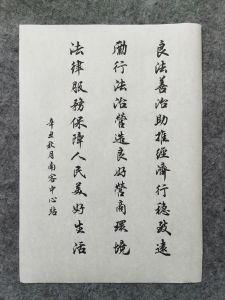 良法善治助推經濟行穩致遠
勵行法治營造良好營商環境
法律服務保障人民美好生活
辛丑秋月南容中心站